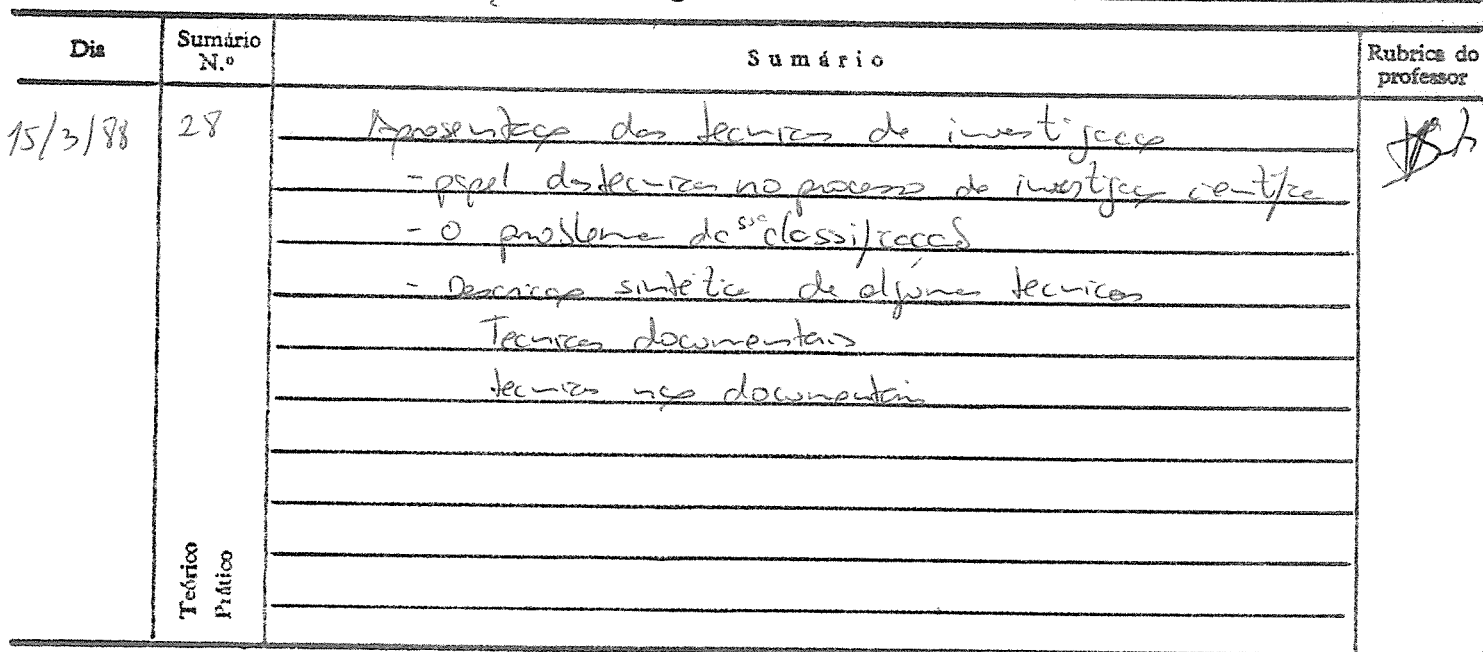 Dia Sumário N.º Sumário Rubrica do professor
15/3/88 28 Apresentação das tecnicas de investigação
- papel das tecnicas no processo de investigação cientifica
- O problema da sua classificação
- Descrição sintética de algumas tecnicas
Tecnicas documentais
tecnicas não documentais
Teórico
Prático